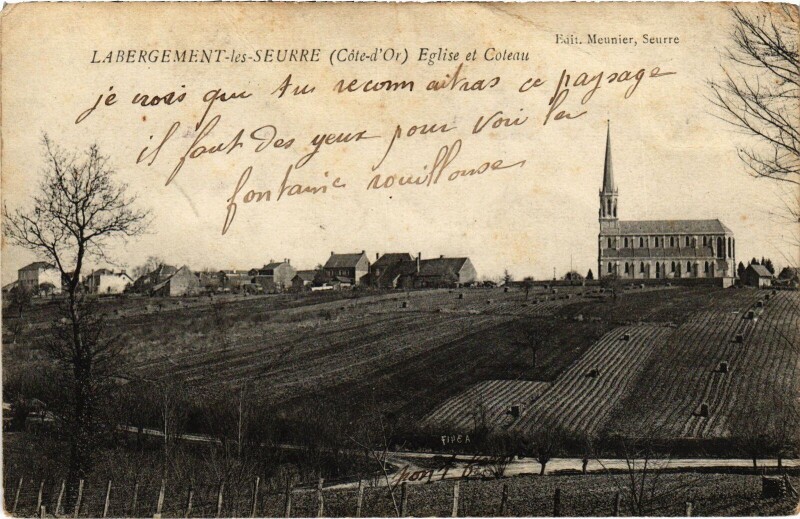 Edit. Meunier, Seurre
LABERGEMENT-les-SEURRE (Côte-d'Or) Eglise et Coteau
je crois que tu reconnaitras ce paysage
il faut des yeux pour voir la
fontaine rouillouse
FIPEA